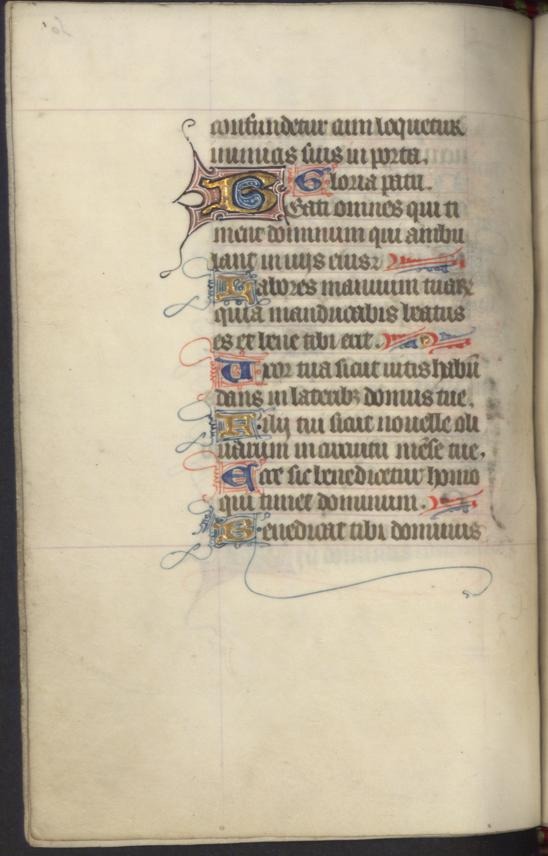 confundetur cum loquetur
inimicis suis in porta.
Gloria patri.
Beati omnes qui ti
ment dominum qui ambu
lant in viis eius
Labores manuum tuar
quia manducabis beatus
es et bene tibi erit.
Uxor tua sicut vitis habū
dans in laterib3 domus tue.
Filij tui sicut nouelle oli
uarum in circuitu mēse tue.
Ecce sic benedicetur homo
qui timet dominum.
Benedicat tibi dominus